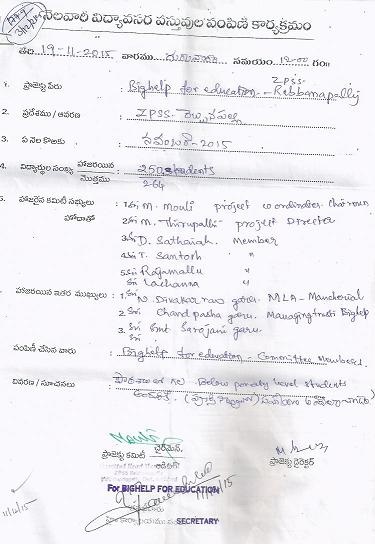 నెలవారీ విద్యావసర వస్తువుల పంపిణి కార్యక్రమం
తేది 19-11-2015 వారము గురువారం సమయం 12-00 గం॥
ZPSS-
1. ప్రాజెక్టు పేరు : Bighelp for education - Rebbanapally
2. ప్రదేశము / ఆవరణ : ZPSS- రెబ్బనపల్లి
3. ఏ నెల కొరకు : నవంబర్-2015
4. విద్యార్థుల సంఖ్య హాజరయిన : 250 students
మొత్తము 264
5. హాజరైన కమిటీ సభ్యులు : 1. శ్రీ M. Mouli project co ordinator
హోదాతో 2. శ్రీ M. Thirupathi project Director
3. శ్రీ D. Sathaiah. Member
4. శ్రీ T. Santosh "
5. శ్రీ Rajamallu "
శ్రీ Lachanna "
హాజరయిన ఇతర ముఖ్యులు : 1. శ్రీ N. Divakar rao garu. MLA- Mancherial
2. శ్రీ Chand pasha garu. Managing trusti Bighelp
3. శ్రీ Smt Sarojani garu.
శ్రీ
పంపిణీ చేసిన వారు : Bighelp for education - Committee Members.
వివరణ / సూచనలు : పాఠశాలలో గల Below poverty level students
Mouli
ప్రాజెక్టు కమిటీ చైర్మెన్,
ప్రాజెక్టు డైరెక్టర్
For BIGHELP FOR EDUCATION
SECRETARY
11/12/15